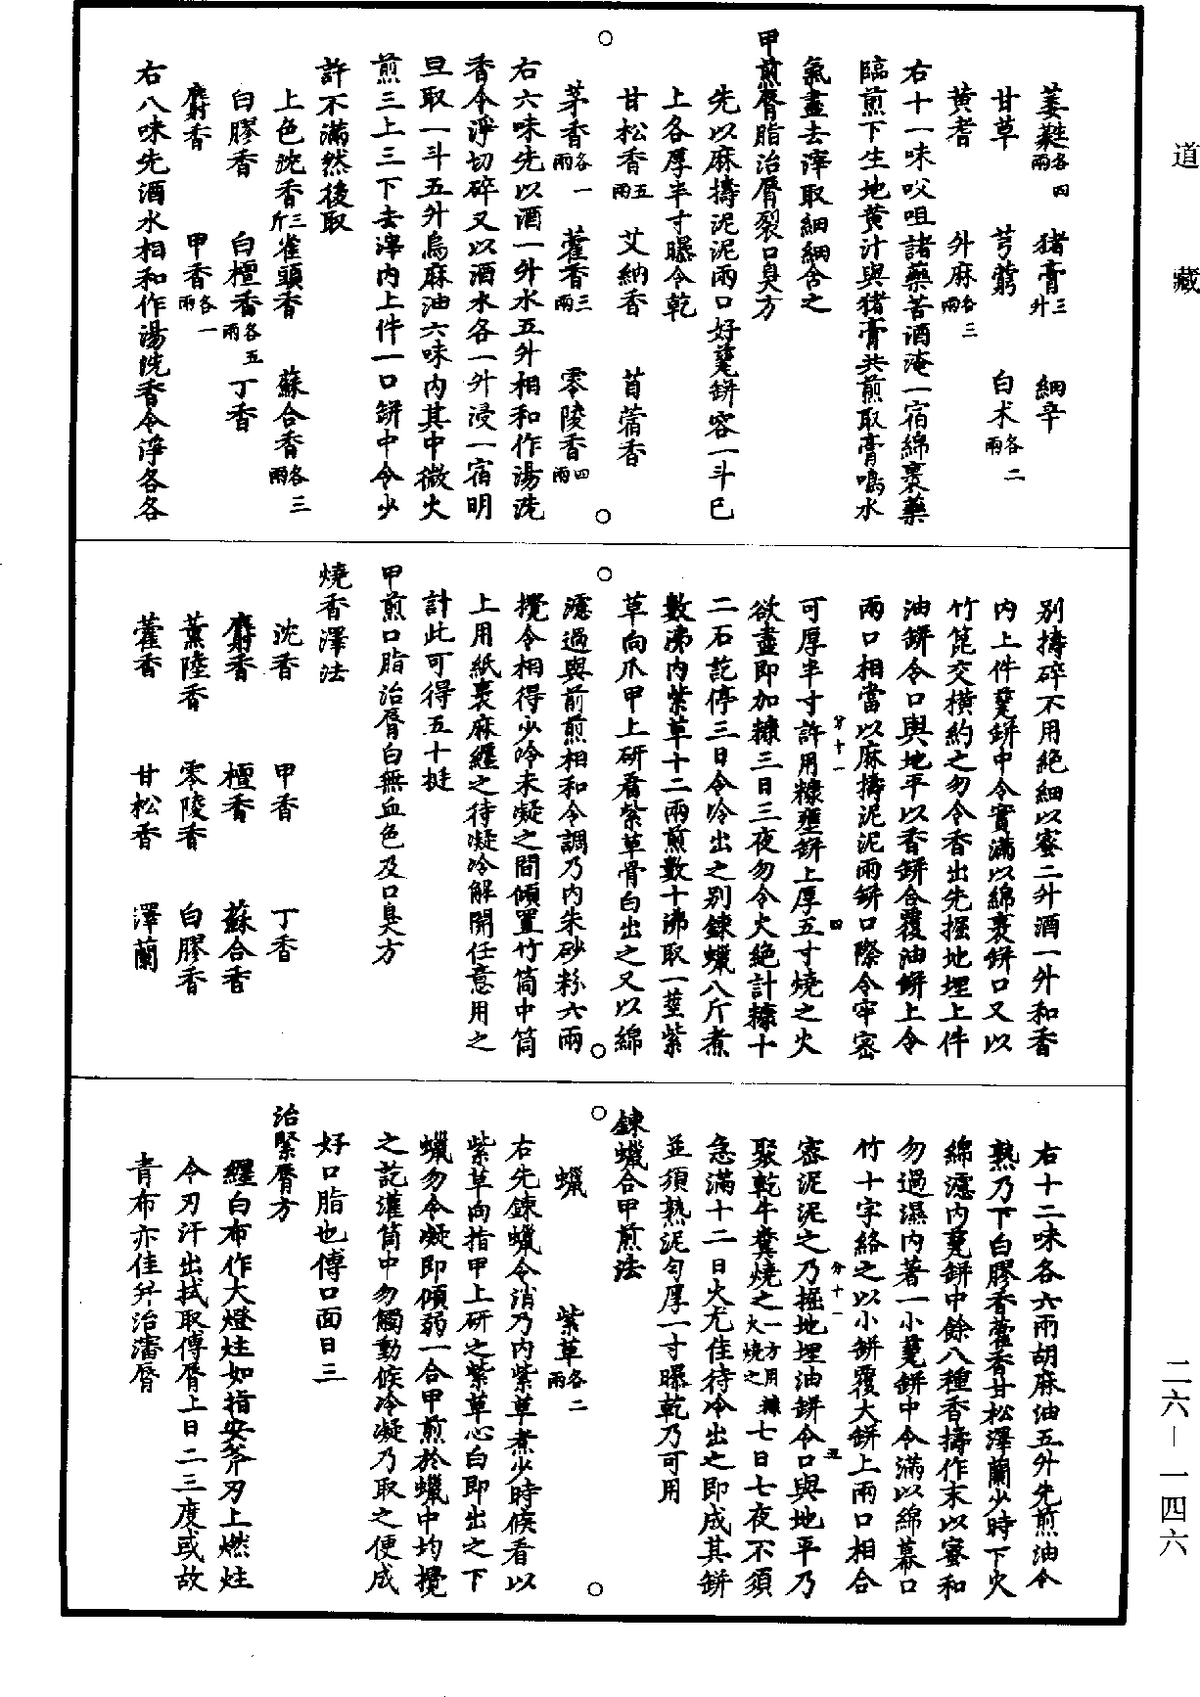 道藏
萎蕤各四兩　猪膏三升　細辛
甘草　芎藭　白术各二兩
黄耆　升麻各三兩
右十一味㕮咀諸藥苦酒淹一宿綿裹藥
臨煎下生地黄汁與猪膏共煎取膏鳴水
氣盡去滓取細細含之
甲煎脣脂治脣裂口臭方
先以麻擣泥泥兩口好甆缾容一斗已
上各厚半寸曝令乾
甘松香五兩　艾納香　苜蓿香
茅香各一兩　藿香三兩　零陵香四兩
右六味先以酒一升水五升相和作湯洗
香令淨切碎又以酒水各一升浸一宿明
旦取一斗五升烏麻油六味内其中微火
煎三上三下去滓内上件一口缾中令少
許不滿然後取
上色沈香三斤　雀頭香　蘇合香各三兩
白膠香　白檀香各五兩　丁香
麝香　甲香各一兩
右八味先酒水相和作湯洗香令淨各各
别擣碎不用絶細以蜜二升酒一升和香
内上件甆缾中令實滿以綿裹缾口又以
竹篦交横約之勿令香出先掘地埋上件
油缾令口與地平以香缾合覆油缾上令
兩口相當以麻擣泥泥兩缾口際令牢密
分十一　四
可厚半寸許用糠壅缾上厚五寸燒之火
欲盡即加糠三日三夜勿令火絶計糠十
二石訖停三日令冷出之别鍊蠟八斤煮
數沸内紫草十二兩煎數十沸取一莖紫
草向爪甲上研看紫草骨白出之又以綿
濾過與前煎相和令調乃内朱砂粉六兩
攪令相得少冷未凝之間傾置竹筒中筒
上用紙裹麻纏之待凝冷解開任意用之
計此可得五十挺
甲煎口脂治脣白無血色及口臭方
燒香澤法
沈香　甲香　丁香
麝香　檀香　蘇合香
薰陸香　零陵香　白膠香
藿香　甘松香　澤蘭
右十二味各六兩胡麻油五升先煎油令
熟乃下白膠香藿香甘松澤蘭少時下火
綿濾内甆缾中餘八種香擣作末以蜜和
勿過濕内著一小甆缾中令滿以綿幕口
竹十字絡之以小缾覆大缾上兩口相合
分十一　五
密泥泥之乃掘地埋油缾令口與地平乃
聚乾牛糞燒之一方用糠火燒之七日七夜不須
急滿十二日火尤佳待冷出之即成其缾
並須熟泥匀厚一寸曝乾乃可用
鍊蠟合甲煎法
蠟　紫草各二兩
右先鍊蠟令消乃内紫草煮少時候看以
紫草向指甲上研之紫草心白即出之下
蠟勿令凝即傾弱一合甲煎於蠟中均攪
之訖灌筒中勿觸動候冷凝乃取之便成
好口脂也傅口面日三
治緊脣方
纏白布作大燈炷如指安斧刃上燃炷
令刃汗出拭取傅脣上日二三度或故
青布亦佳并治瀋脣
二六－一四六